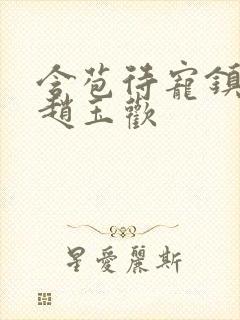 含苞待寵鎮
趙玉歡
星愛麗斯